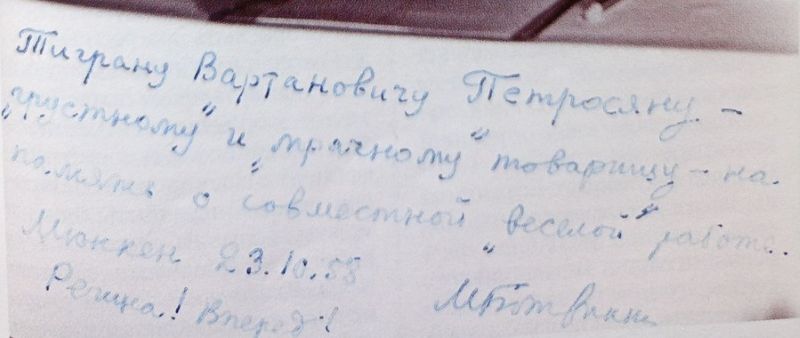 Тиграну Вартановичу Петросяну –
„грустному“ и „мрачному“ товарищу – на
память о совместной „веселой“ работе.
Мюнхен 23.10.58
МБотвинник
Регина! Вперед!